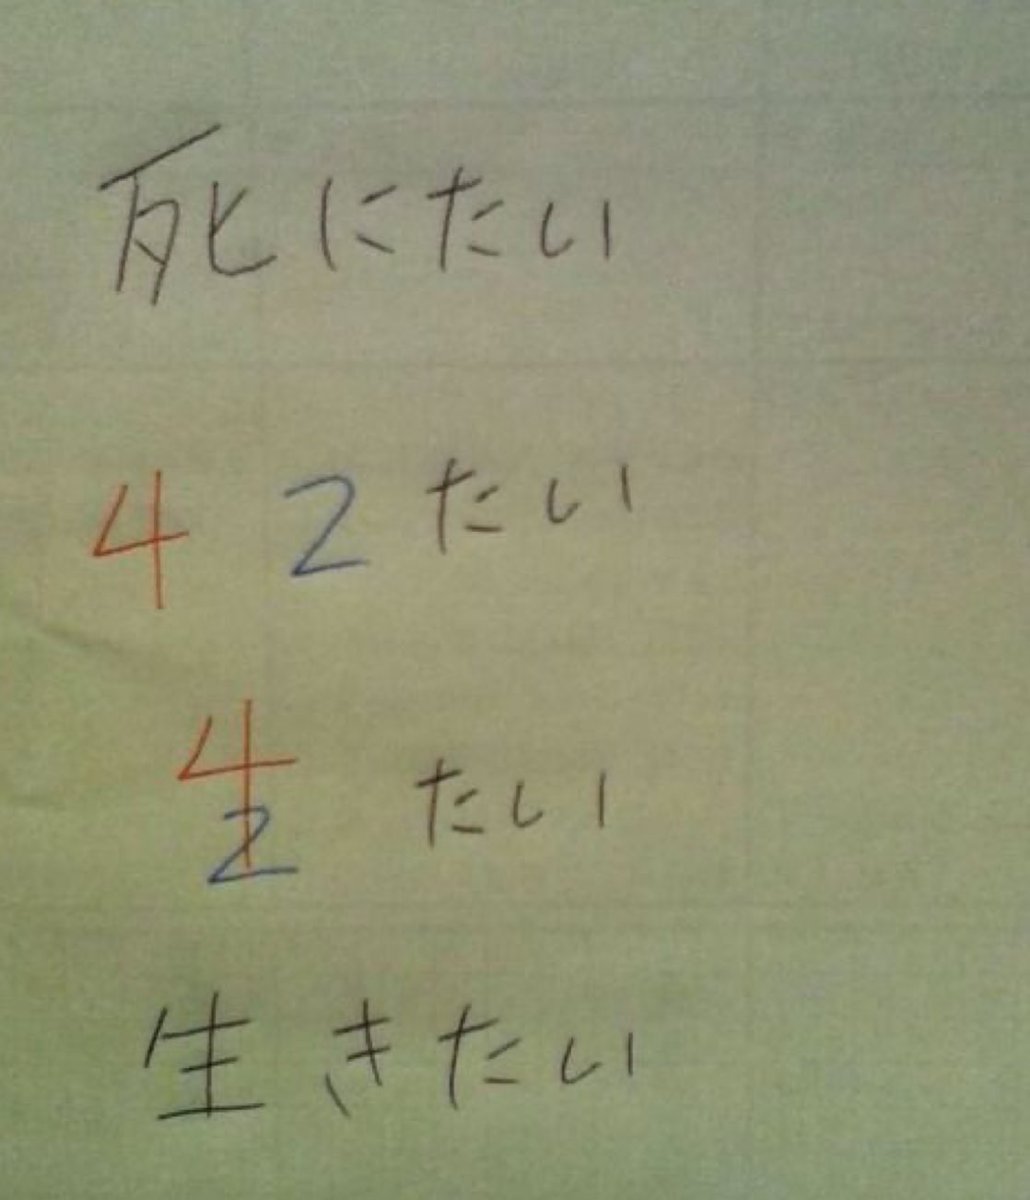 死にたい
4 2たい
4
2 たい
生きたい